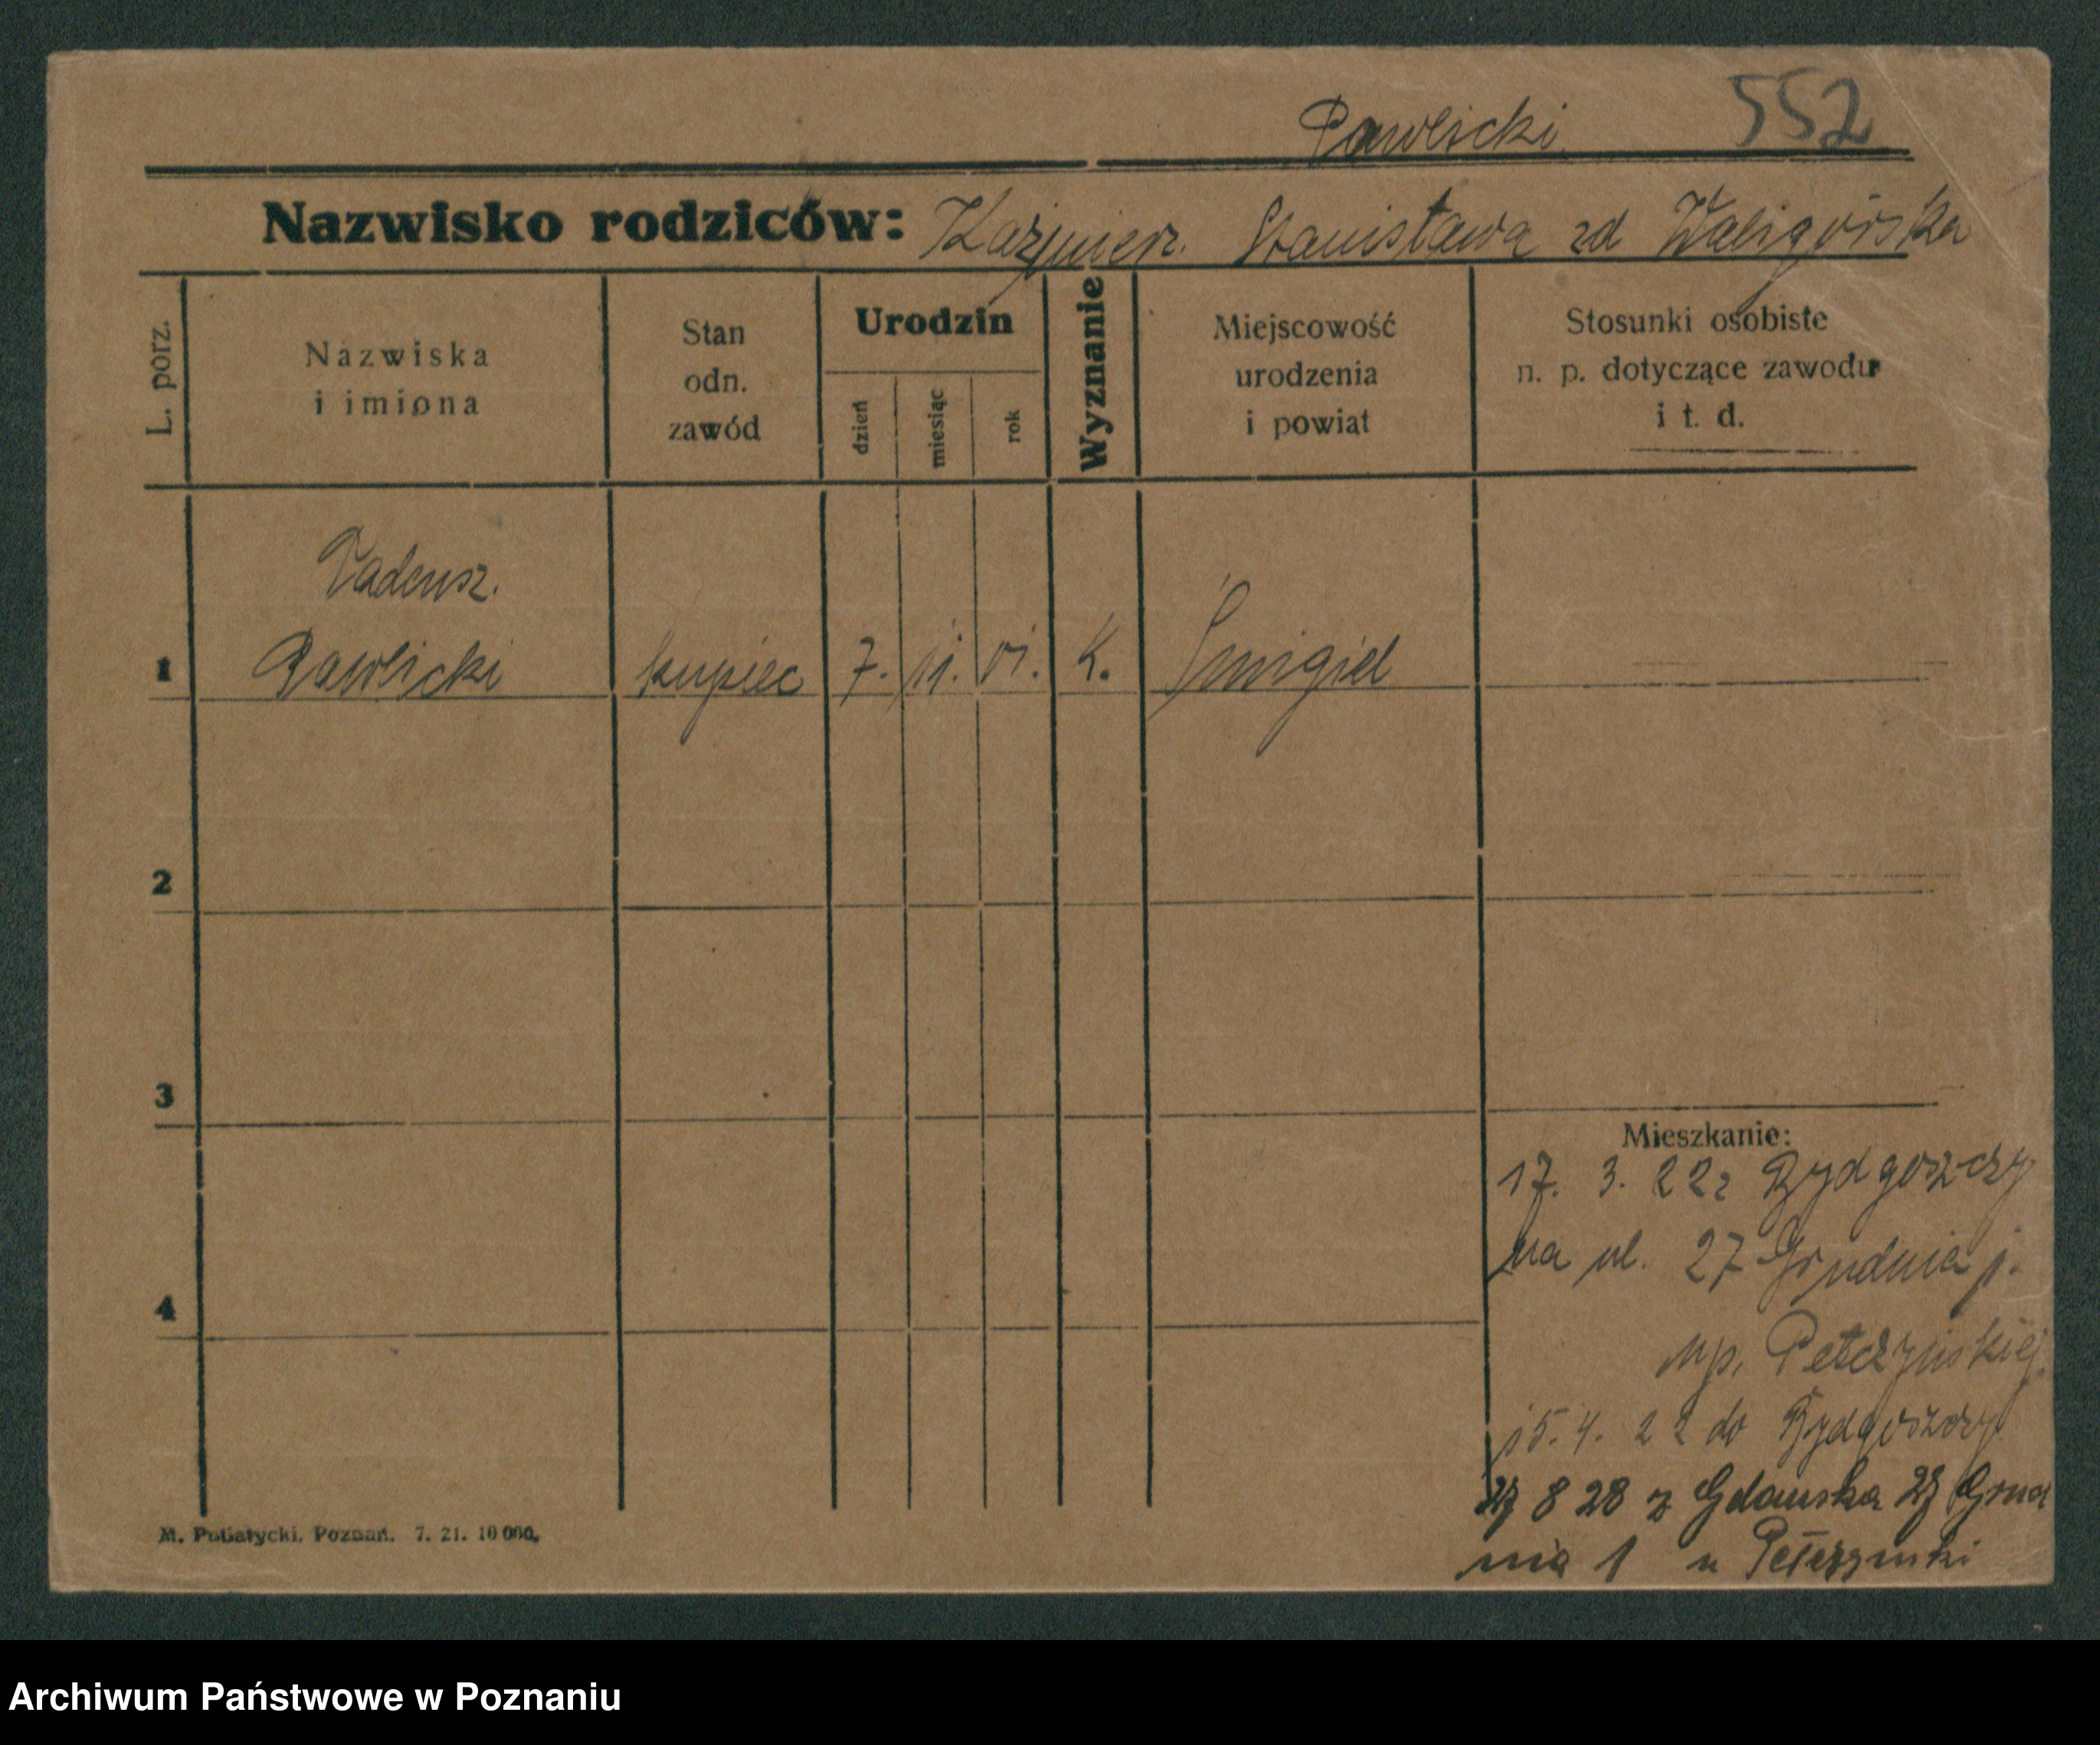 Pawlicki 552
Nazwisko rodziców: Kazimierz. Stanisława zd Waligórska
L. porz.
Nazwiska
i imiona
Stan
odn.
zawód
Urodzin
dzień
miesiąc
rok
Wyznanie
Miejscowość
urodzenia
i powiat
Stosunki osobiste
n. p. dotyczące zawodu
i t. d.
Tadeusz.
1 Pawlicki kupiec 7. 11. 01. K. Śmigiel
2
3
4
Mieszkanie:
17. 3. 22 z Bydgoszczy
na ul. 27 Grudnia 1.
u p.
15. 4. 22 do Bydgoszczy
27 8 28 z Gdańska 27 Grud
nia 1 u
M. Putiatycki, Poznań. 7. 21. 10 000.
Archiwum Państwowe w Poznaniu